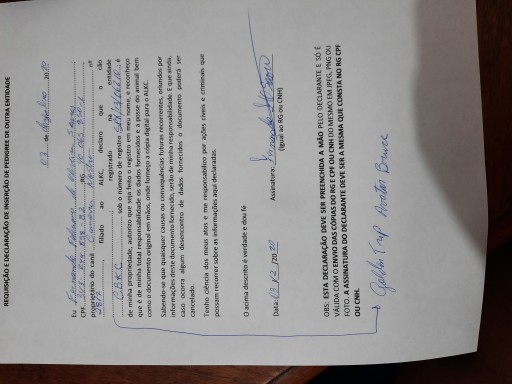 REQUISIÇÃO E DECLARAÇÃO DE INSERÇÃO DE PEDIGREE DE OUTRA ENTIDADE
07 de dezembro 20 20
Eu Fernanda
CPF RG nº
proprietário do canil
filiado ao ALKC, declaro que o cão
registrado na entidade
CBKC sob o número de registro é
de minha propriedade, autorizo que seja feito o registro em meu nome, e reconheço
que é de minha total responsabilidade os dados fornecidos e a posse do animal bem
como o documento original em mãos, onde forneço a cópia digital para o ALKC.
Sabendo-se que quaisquer causas ou consequências futuras recorrentes, oriundos por
informações deste documento fornecido, serão de minha responsabilidade. E que ainda,
caso ocorra algum desencontro de dados fornecidos o documento poderá ser
cancelado.
Tenho ciência dos meus atos e me responsabilizo por ações cíveis e criminais que
possam recorrer sobre as informações aqui declaradas.
O acima descrito é verdade e dou fé
Data: 07/12/2020 Assinatura:
(Igual ao RG ou CNH)
OBS: ESTA DECLARAÇÃO DEVE SER PREENCHIDA A MÃO PELO DECLARANTE E SO É
VÁLIDA COM O ENVIO DAS CÓPIAS DO RG E CPF OU CNH DO MESMO EM JPEG, PNG OU
FOTO. A ASSINATURA DO DECLARANTE DEVE SER A MESMA QUE CONSTA NO RG CPF
OU CNH.
Golden Trip Avatar Bruce